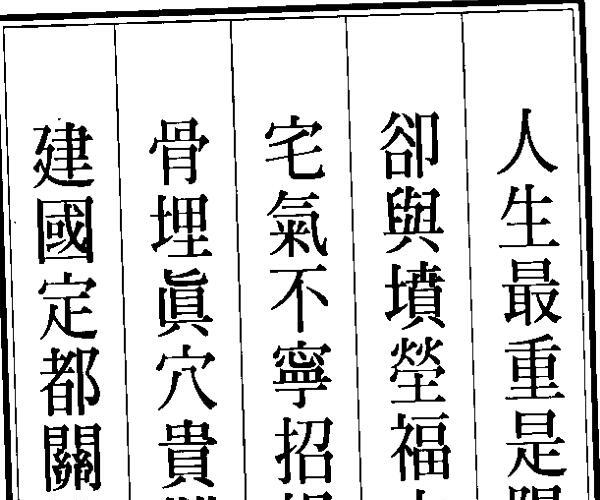 人生最重是
卻與墳塋福
宅氣不寧招
骨埋眞穴貴
建國定都關